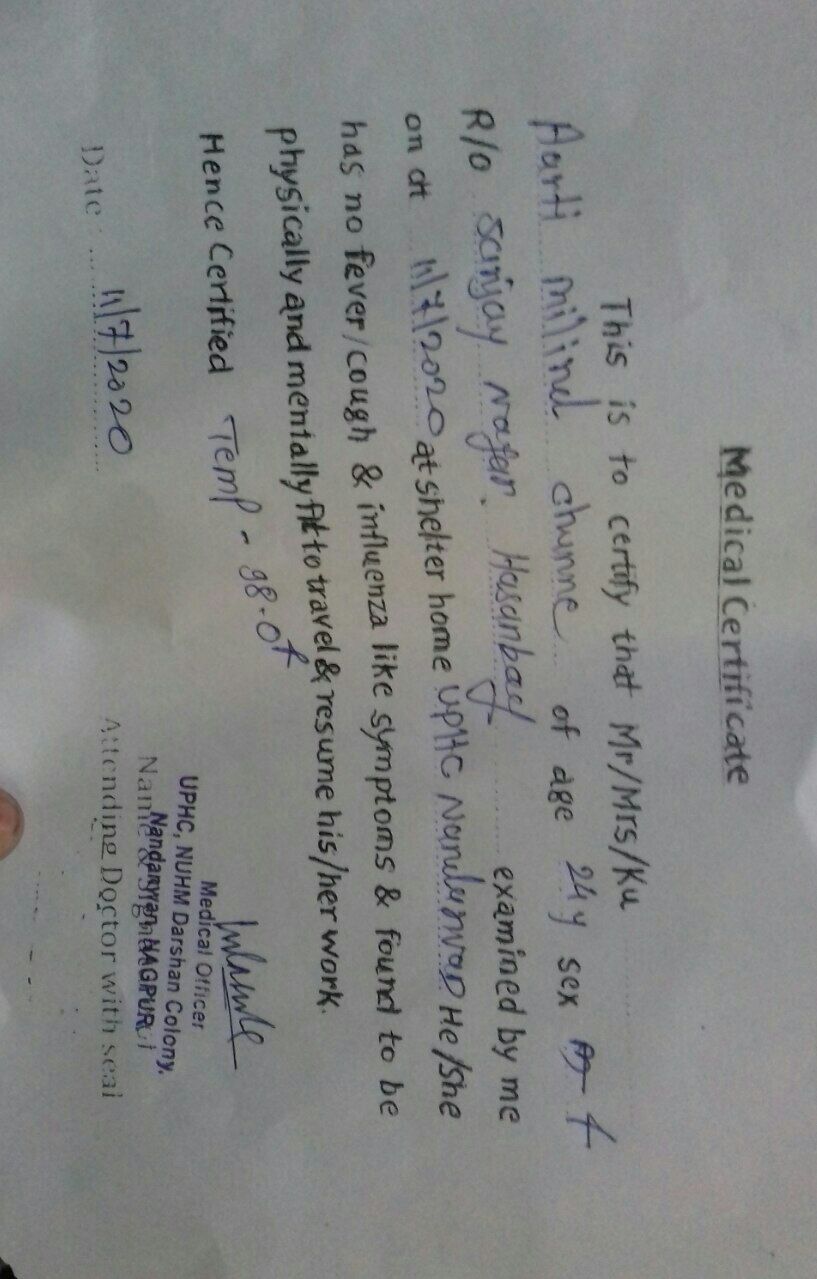 Medical Certificate
This is to certify that Mr/Mrs/Ku
Aarti milind chunne of age 24y sex f
R/o Sanjay nagar, Hasanbag examined by me
on dt 11/7/2020 at shelter home UPHC Nandanvan He/She
has no fever/cough & influenza like symptoms & found to be
physically and mentally fit to travel & resume his/her work.
Hence Certified Temp - 98.0f
Medical Officer
UPHC, NUHM Darshan Colony,
Nandanwan NAGPUR
Date : 11/7/2020
Attending Doctor with seal